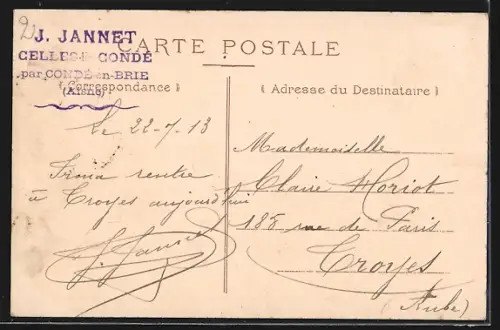 J. JANNET
CELLES-l-CONDÉ
par CONDÉ-en-BRIE
(Aisne)
CARTE POSTALE
( Correspondance )
( Adresse du Destinataire )
Le 22-7-13
Irma rentre
à Troyes aujourd'hui
J. Jannet
Mademoiselle
Claire Horiot
188 rue de Paris
Troyes
(Aube)